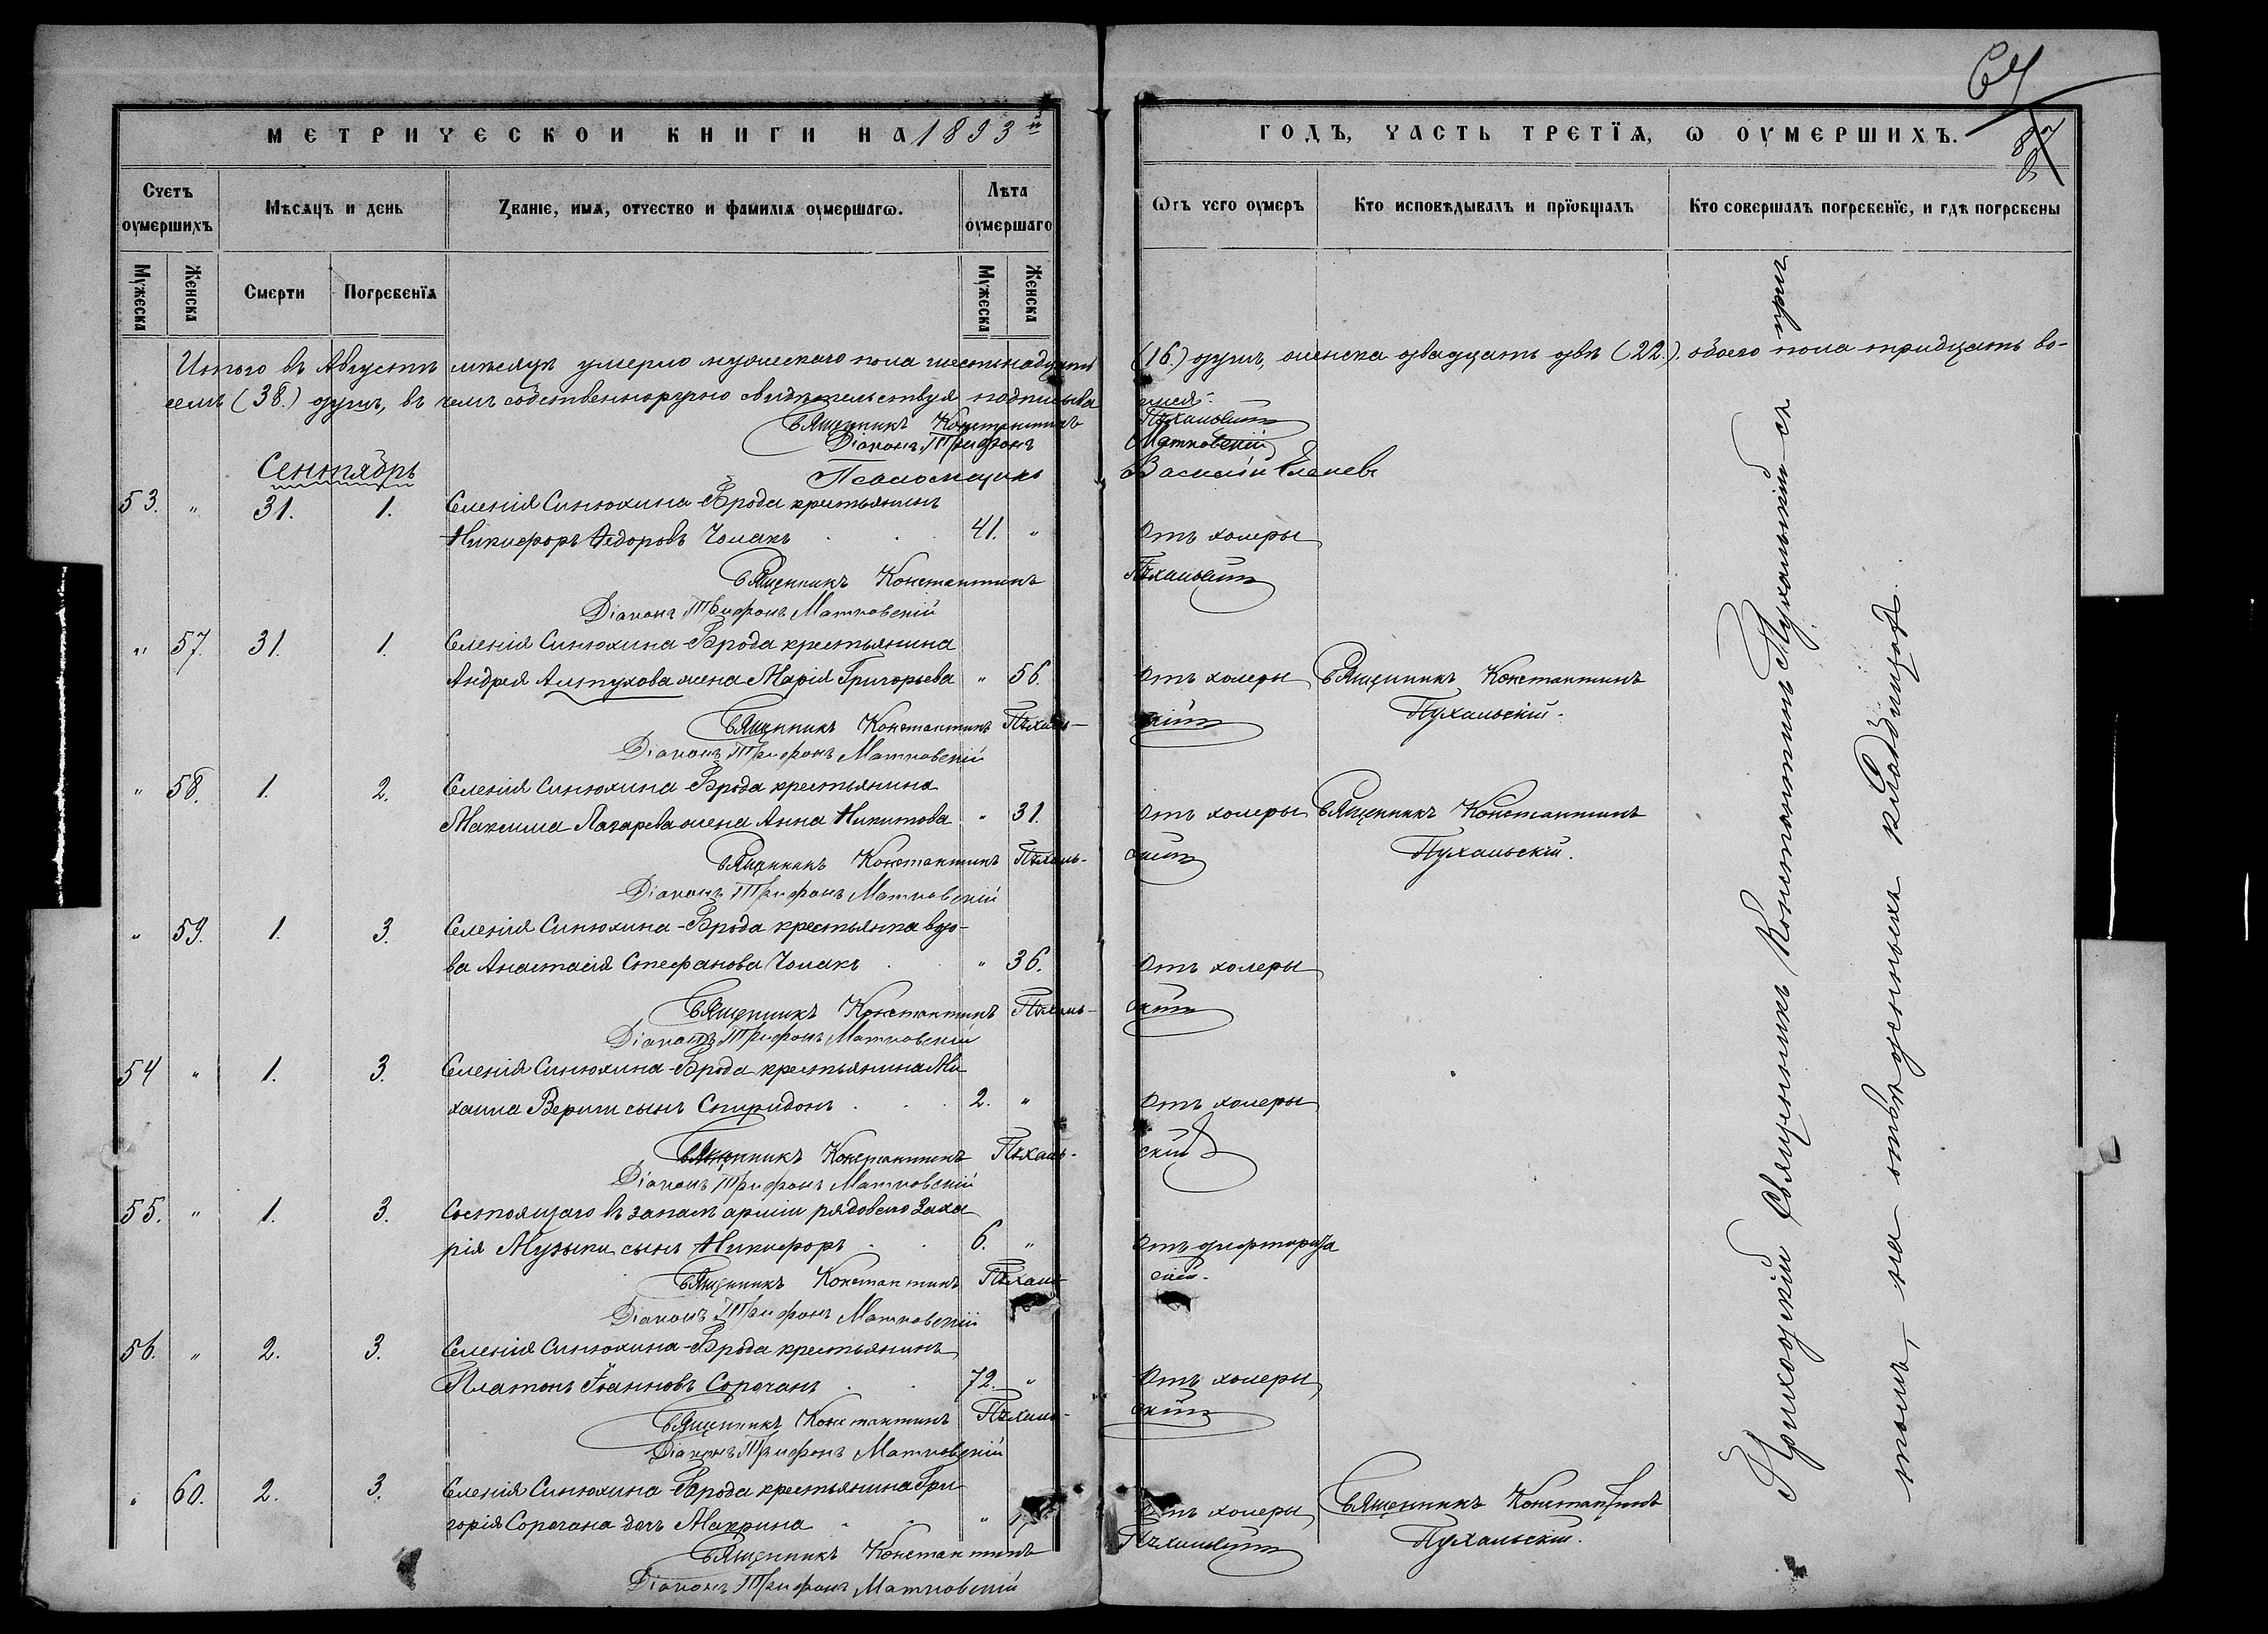 МЕТРИЧЕСКОЙ КНИГИ НА 1893й ГОДЪ, ЧАСТЬ ТРЕТЇѦ, Ѡ ОУМЕРШИХЪ.
64
87
Счетъ оумершихъ
Мѣсѧцъ и день
Званіе, имѧ, отчество и фамиліѧ оумершагѡ.
Лѣта оумершаго
Ѿъ чего оумеръ
Кто исповѣдывалъ и прїѡбщалъ
Кто совершалъ погребенїе, и гдѣ погребены
Мужеска
Женска
Смерти
Погребенїѧ
Мужеска
Женска
Итого въ Августѣ мѣсяцѣ умерло мужескаго пола шестьнадцать (16.) душъ, женска двадцать двѣ (22.), обоего пола тридцать во-
семь (38.) душъ, въ чемъ собственноручно свидѣтельствуя подписываемся:
Священникъ Константинъ Пухальскій
Діаконъ Трифонъ Матковскій
Псаломщикъ Василій
Сентябрь
53. " 31. 1. Селенія Синюхина-Брода крестьянинъ
Никифоръ Ѳедоровъ Чомакъ . . 41. " Отъ холеры
Священникъ Константинъ Пухальскій
Діаконъ Трифонъ Матковскій
" 57. 31. 1. Селенія Синюхина-Брода крестьянина
Андрея Алтухова жена Марія Григорьева " 56. Отъ холеры Священникъ Константинъ
Пухальскій.
Священникъ Константинъ Пухальскій
Діаконъ Трифонъ Матковскій
" 58. 1. 2. Селенія Синюхина-Брода крестьянина
Максима Лазарева жена Анна Никитова " 31. Отъ холеры Священникъ Константинъ
Пухальскій.
Священникъ Константинъ Пухаль-скій
Діаконъ Трифонъ Матковскій
" 59. 1. 3. Селенія Синюхина-Брода крестьянка вдо-
ва Анастасія Стефанова Чомакъ . " 36. Отъ холеры
Священникъ Константинъ Пухаль-скій
Діаконъ Трифонъ Матковскій
54 " 1. 3. Селенія Синюхина-Брода крестьянина Ми
хаила Вериги сынъ Спиридонъ . . . 2. " Отъ холеры
Священникъ Константинъ Пухаль-скій
Діаконъ Трифонъ Матковскій
55. " 1. 3. Состоящаго въ запасѣ арміи рядового Заха
рія Музыки сынъ Никифоръ . . 6. " Отъ дифторита
Священникъ Константинъ Пухальскій.
Діаконъ Трифонъ Матковскій
56. " 2. 3. Селенія Синюхина-Брода крестьянинъ
Платонъ Іоанновъ Сорочанъ . . 72. " Отъ холеры
Священникъ Константинъ Пухаль-скій
Діаконъ Трифонъ Матковскій
" 60. 2. 3. Селенія Синюхина-Брода крестьянина Гри
горія Сорочана дочь Макрина . . " Отъ холеры Священникъ Константинъ
Пухальскій.
Священникъ Константинъ Пухальскій
Діаконъ Трифонъ Матковскій
Приходскій Священникъ Константинъ Пухальскій съ прич
томъ, на отведенныхъ кладбищахъ.